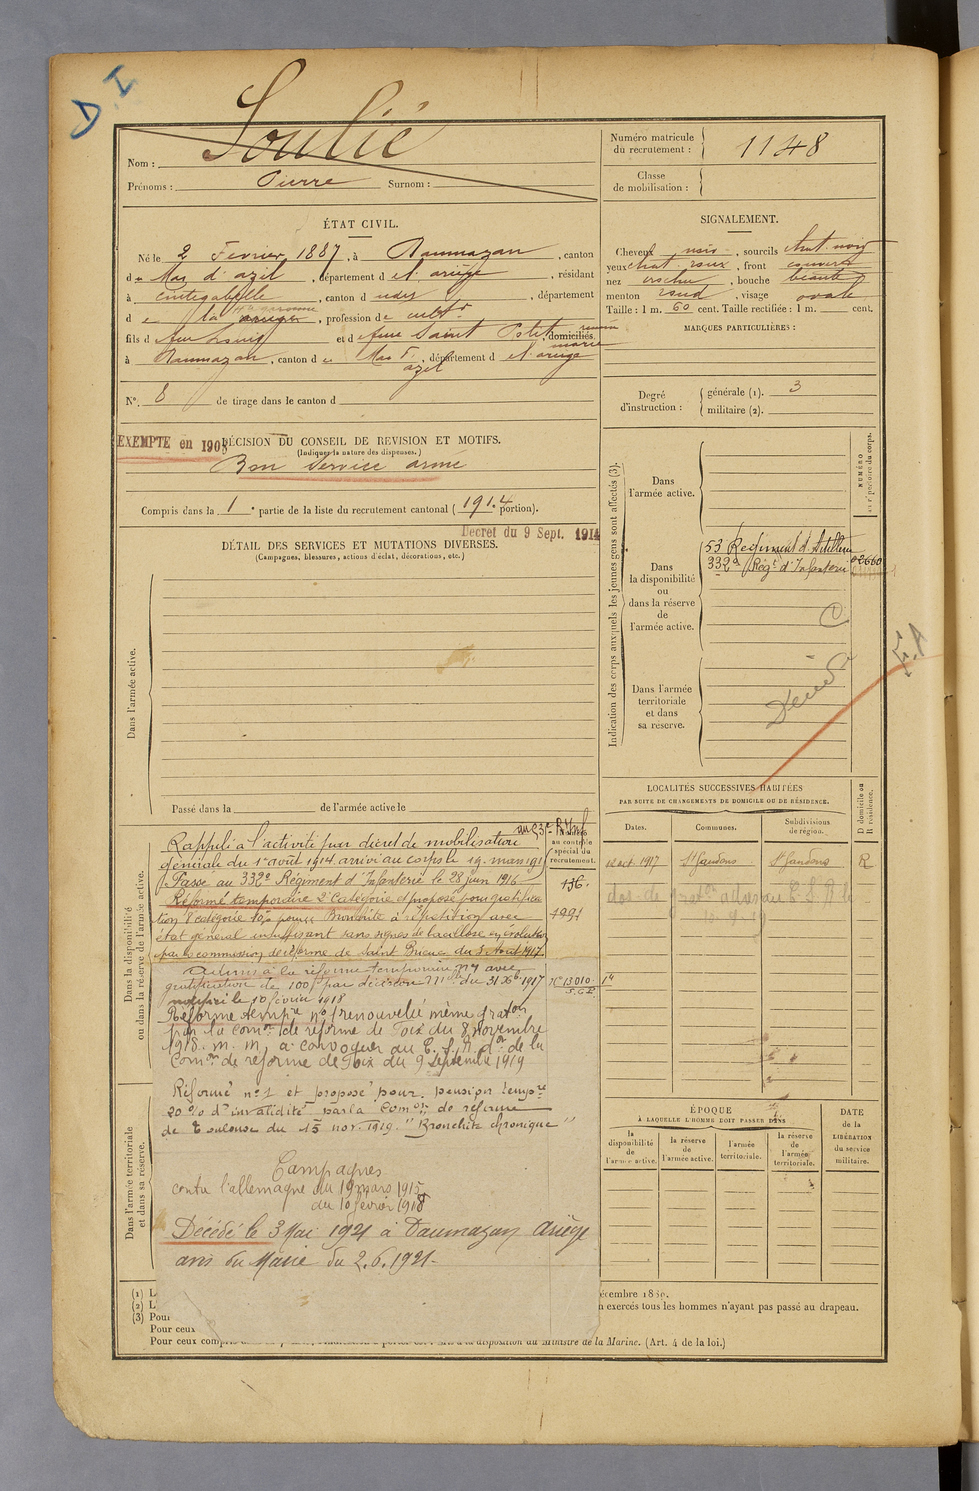 D.I
Soulié
Nom :
Prénoms : Pierre Surnom :
Numéro matricule du recrutement : 1148
Classe de mobilisation :
ÉTAT CIVIL.
Né le 2 Fevrier 1887, à Daumazan, canton
d u Mas d'azil, département d e l'ariège, résidant
à cintegabelle, canton d udit, département
d e la Hte garonne, profession de cultr
fils d e feu Louis et d e feue Saint domiciliés
à Daumazan, canton d u Mas d'azil, département d e l'ariège
N°. 8 de tirage dans le canton d
SIGNALEMENT.
Cheveux noirs, sourcils chat. noir
yeux chat. roux, front couvert
nez, bouche
menton rond, visage ovale
Taille : 1 m. 60 cent. Taille rectifiée : 1 m. cent.
MARQUES PARTICULIÈRES :
Degré d'instruction : générale (1). 3
militaire (2).
EXEMPTE en 190
DÉCISION DU CONSEIL DE REVISION ET MOTIFS.
(Indiquer la nature des dispenses.)
Bon service armé
Compris dans la 1e partie de la liste du recrutement cantonal (1914 portion).
Decret du 9 Sept. 1914
DÉTAIL DES SERVICES ET MUTATIONS DIVERSES.
(Campagnes, blessures, actions d'éclat, décorations, etc.)
Dans l'armée active.
Passé dans la de l'armée active le
Indication des corps auxquels les jeunes gens sont affectés (3).
Dans l'armée active.
Dans la disponibilité ou dans la réserve de l'armée active.
53 Regiment d'Artillerie
332e Regt d'Infanterie 02660
Dans l'armée territoriale et dans sa réserve.
LOCALITÉS SUCCESSIVES HABITÉES
PAR SUITE DE CHANGEMENTS DE DOMICILE OU DE RÉSIDENCE.
Dates. Communes. Subdivisions de région. D domicile ou R résidence.
oct. 1917 St Gaudens St Gaudens R
Dans la disponibilité ou dans la réserve de l'armée active.
Rappelé à l'activité par décret de mobilisation
générale du 1er août 1914 arrivé au corps le 19 mars 191
Passé au 332e Régiment d'Infanterie le 28 juin 1916 136.
Réformé temporaire 2e Catégorie et proposé pour gratifica
tion 8e catégorie 10% pour Bronchite à répétition avec 1991
état général insuffisant sans signes de bacillose en évolution
par la commission de réforme de Saint Brieuc du 3 Août 1917.
Admis à la réforme temporaire n° 1 avec
gratification de 100f par décision du 31 Xbre 1917
notifié le 10 février 1918
Réforme tempre n° 1 renouvelée même graton
par la comon de réforme de Foix du 8 novembre
1918. m. m. a convoquer au C. S. R. don de la
Comon de réforme de Foix du 9 Septembre 1919
Réformé n° 1 et proposé pour pension tempre
20 % d'invalidité par la Comon de réforme
de Toulouse du 15 nov. 1919. "Bronchite chronique"
Campagnes
contre l'allemagne du 19 mars 1915
au 10 fevrier 1918
Décédé le 3 Mai 1921 à Daumazan Ariège
avis du Maire du 2.6.1921.
Dans l'armée territoriale et dans sa réserve.
ÉPOQUE
À LAQUELLE L'HOMME DOIT PASSER DANS
la disponibilité de l'armée active. la réserve de l'armée active. l'armée territoriale. la réserve de l'armée territoriale.
DATE de la LIBÉRATION du service militaire.
(1) L
(2) L' n exercés tous les hommes n'ayant pas passé au drapeau.
(3) Pour
Pour ceux
Pour ceux à la disposition du Ministre de la Marine. (Art. 4 de la loi.)